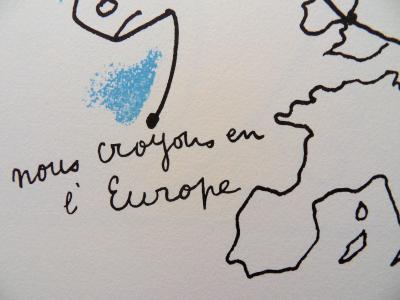 nous croyons en
l' Europe